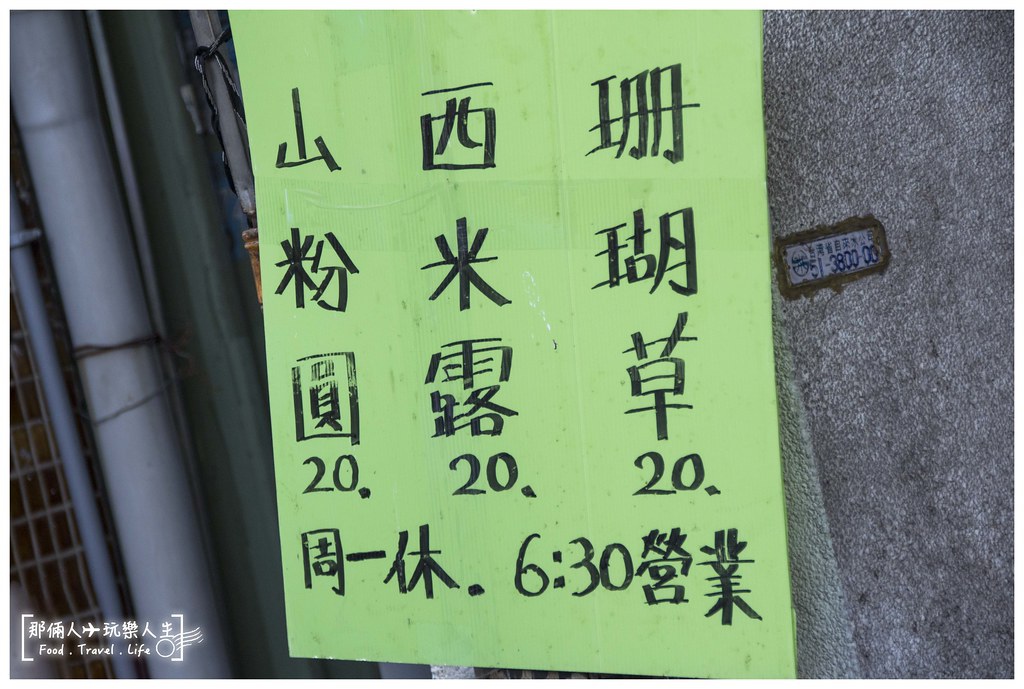 珊瑚草
20.
西米露
20.
山粉圓
20.
周一休. 6:30營業
51-3800-00
[那倆人✈玩樂人生]
Food . Travel . Life